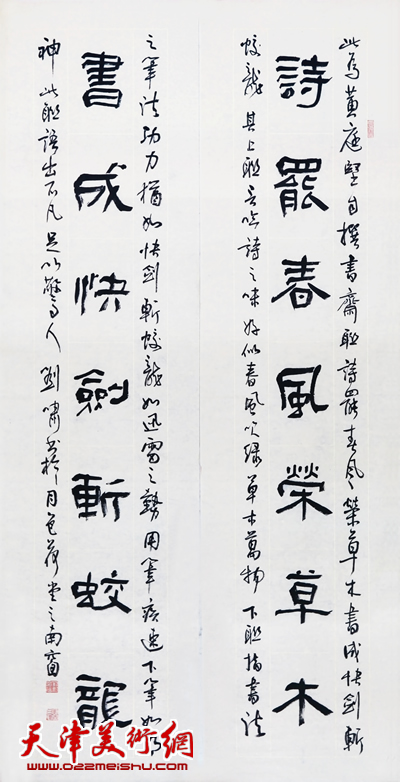 此为黄庭坚自撰書齋联詩罷春风榮草木書成快剑斬
詩罷春風榮草木
蛟龍其上联言吟詩之味好似春風吹绿草木萬物下联指書法
之筆法劲力犹如快剑斬蛟龍如迅雷之势用筆疾速下筆如
書成快劍斬蛟龍
神此联语出不凡足以驚人劉啸書於月色荷堂之南窗
天津美術網
www.022meishu.com